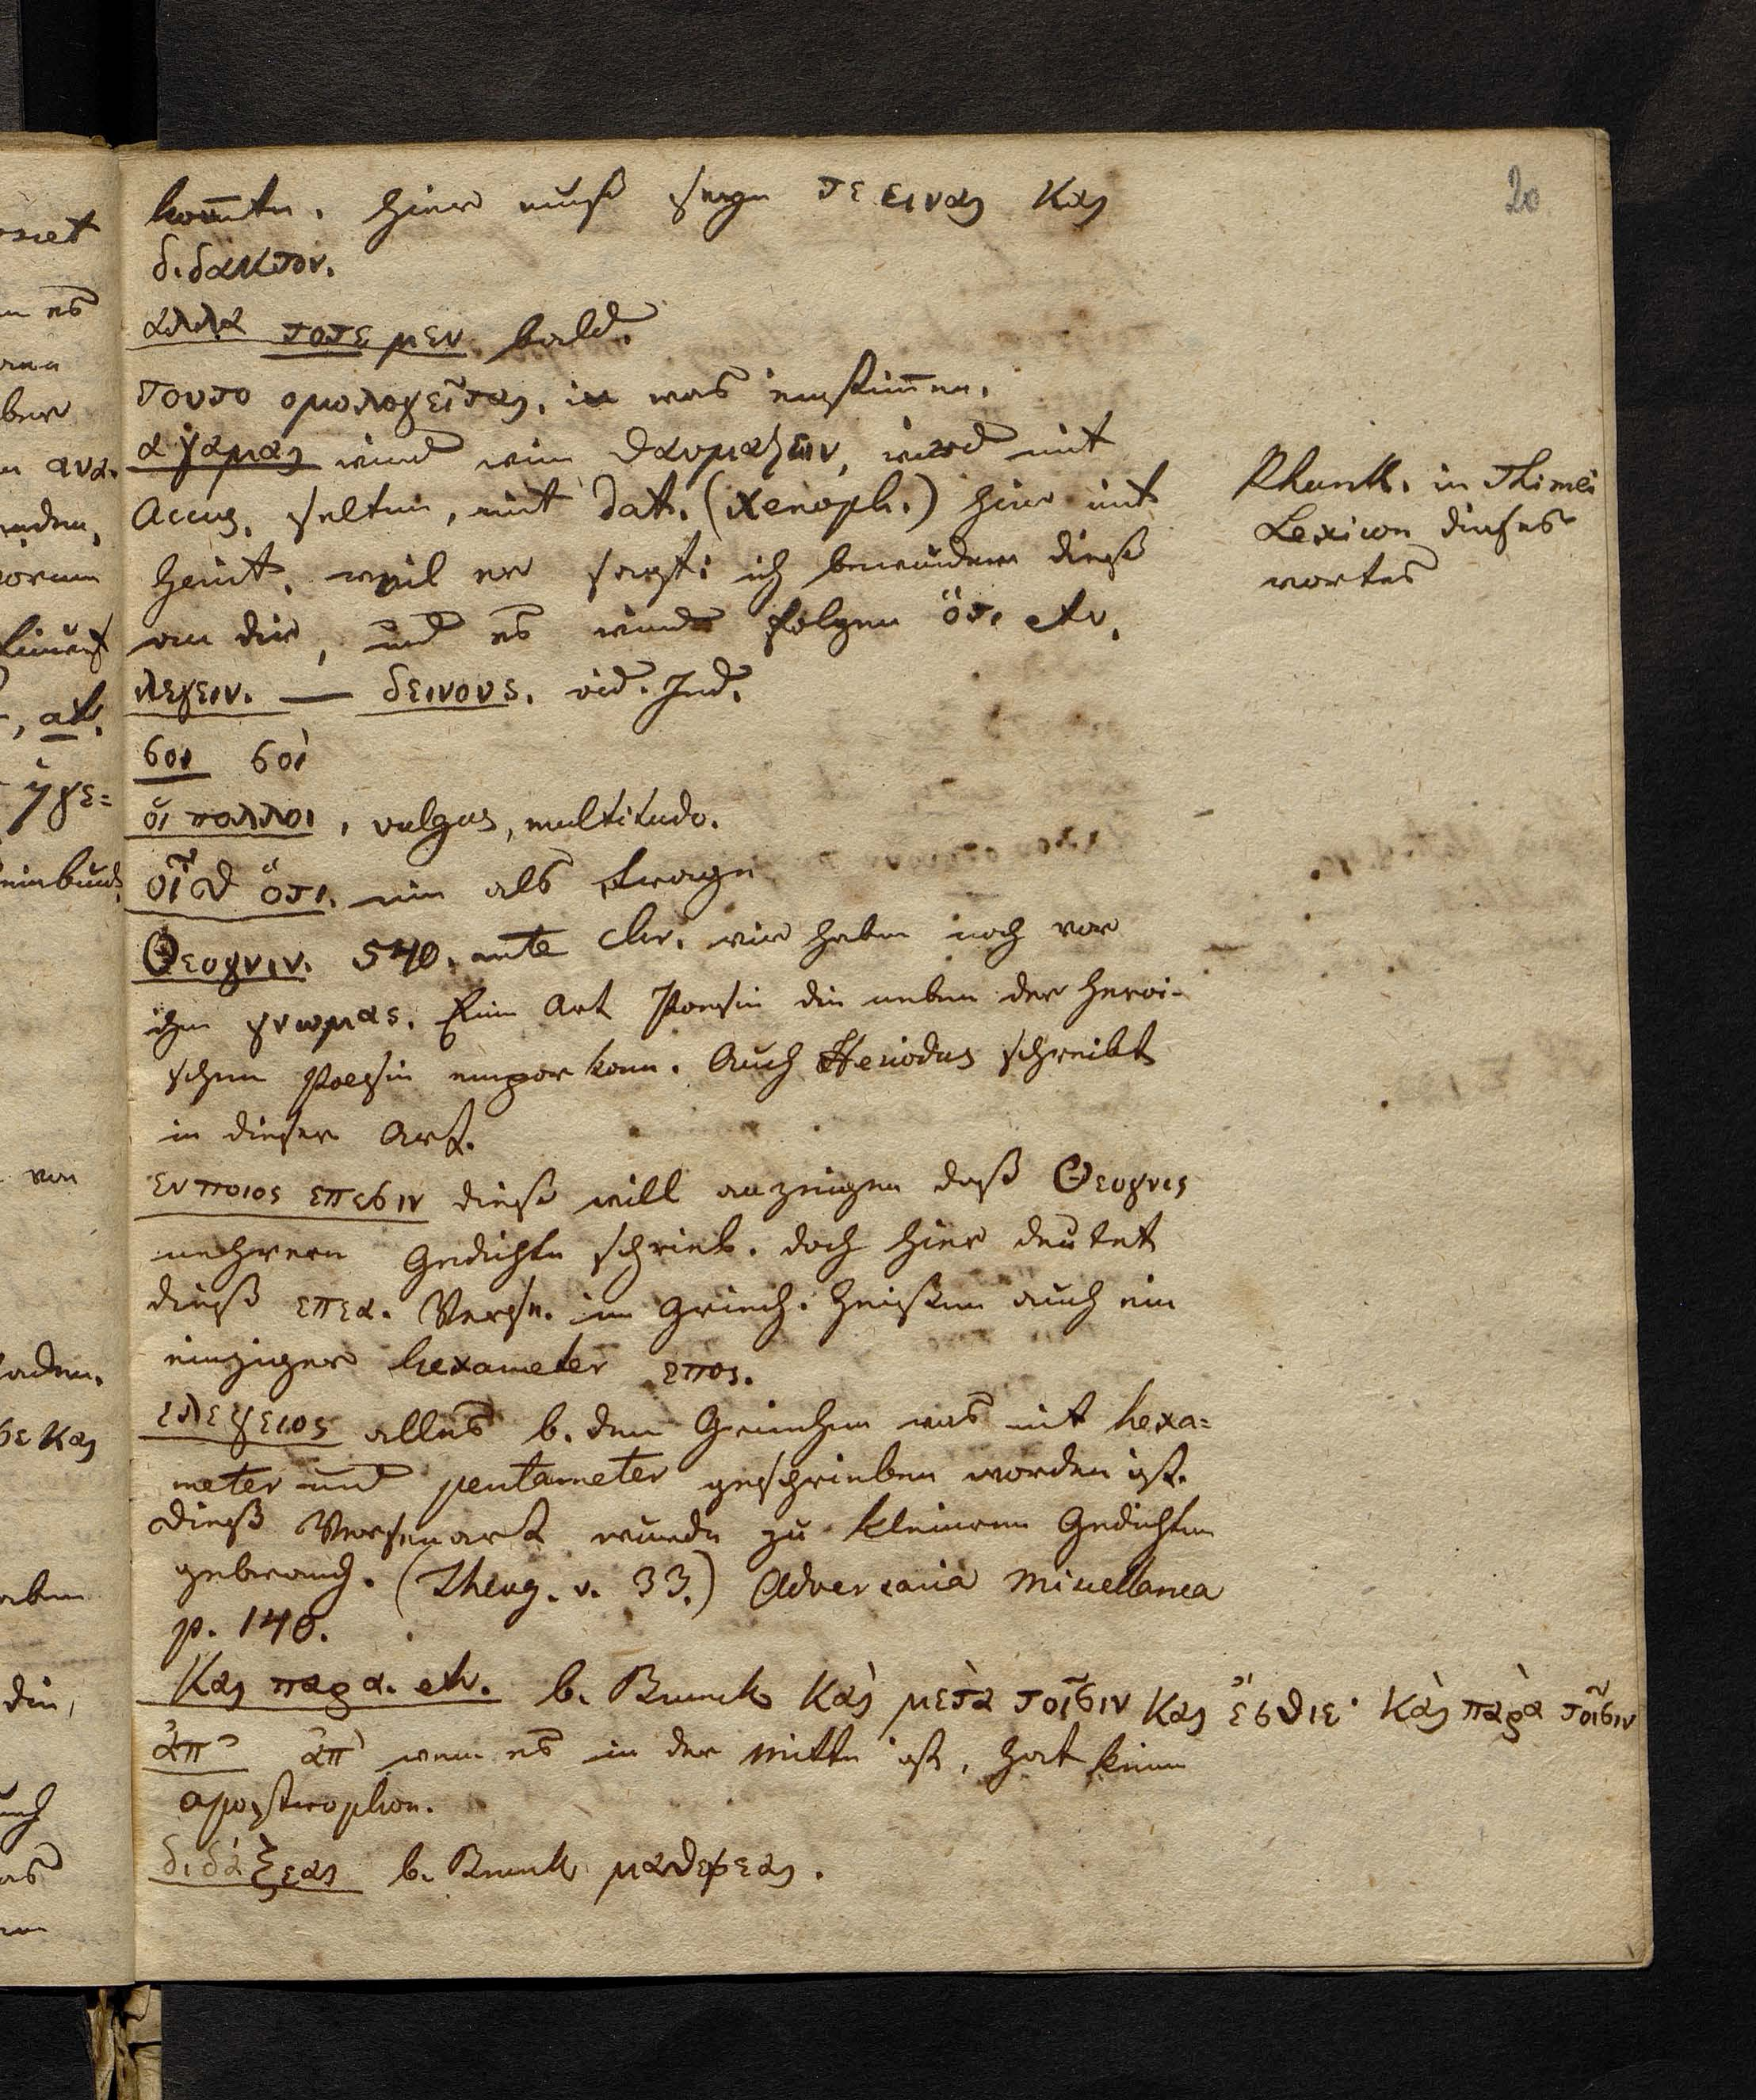 20
kom̄te. hier muß seyn τε ειναι και
διδακτον.
αλλα τοτε μεν bald.
τουτο ομολογεῖται. in was einstim̄en.
αγαμαι wird wie θαυμαζειν, wird mit
Accus. selten, mit Dat. (Xenoph.) hier mit
Genit. weil er sagt: ich bewundere dieß
an dir, und es wird folgen ὅτι etc.
λεγειν. — δεινους. vid. Ind.
σοι σοὶ
ὁι πολλοι, vulgus, multitudo.
οἶσθ ὅτι. nim als frage
Θεογνιν. 540. ante Chr. wir haben noch von
ihm γνωμας. Eine Art Poesie die neben der heroi-
schen Poesie empor kam. Auch Hesiodus schreibt
in dieser Art.
εν ποιοις επεσιν dieß will anzeigen daß Θεογνις
mehrere Gedichte schrieb. doch hier deutet
dieß επεα. Verse. im Griech. heißen auch ein
einziger hexameter επος.
ελεγειοις alles b. den Griechen was mit hexa=
meter und pentameter geschrieben worden ist.
Dieß Versenart wurde zu kleinern Gedichten
gebrauch. (Theog. v. 33.) Adversaria Miscellanea
p. 140.
και παρα. etc. b. Brunck καὶ μετὰ τοῖσιν και ἔσθιε· καὶ παρὰ τοῖσιν
ἀπ᾽ ἀπ᾽ wenn es in der Mitte ist, hat keinen
apostrophon.
διδάξεαι b. Brunck μαθησεαι.
Rhunk. in Thimei
Lexicon dieses
wortes